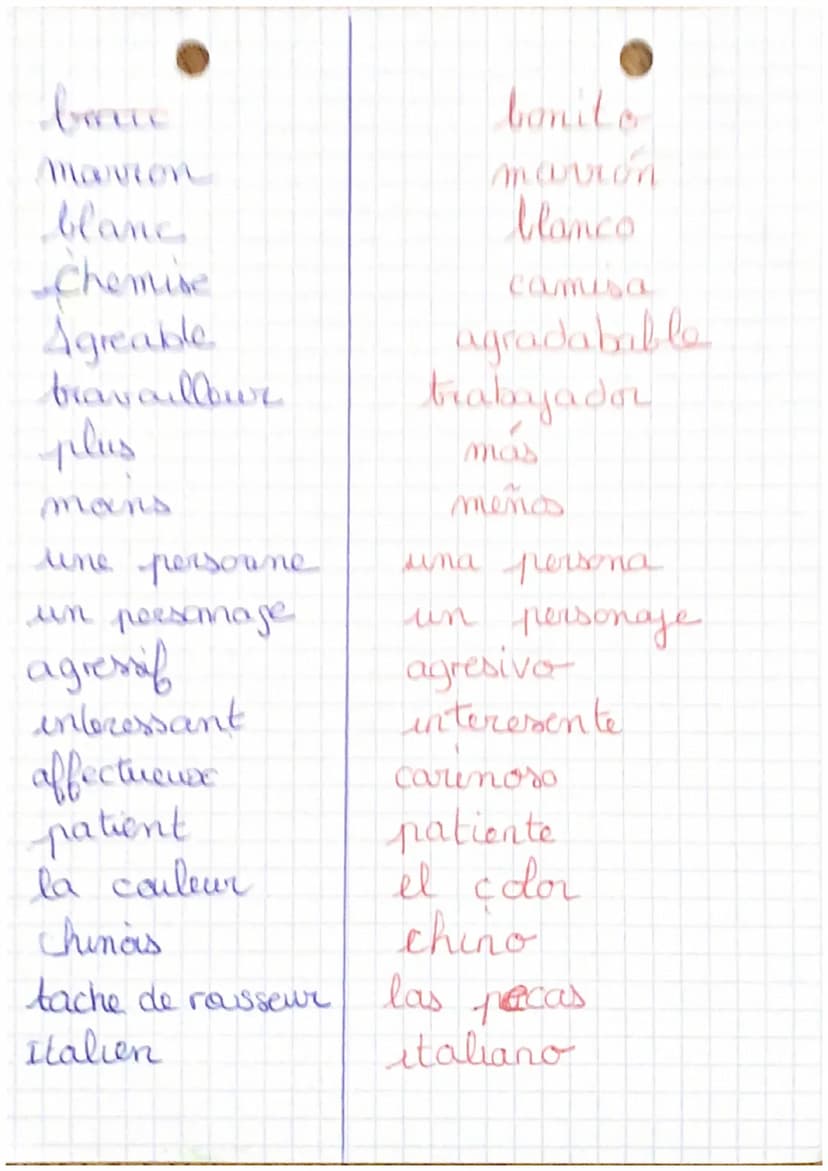 bonito
marron marrón
blanc blanco
Chemise camisa
Agreable agradabable
travailleur trabajador
plus más
moins meños
une personne una persona
un personnage un personaje
agressif agresivo
interessant interesente
affectueux carinoso
patient patiente
la couleur el color
chinois chino
tache de rousseur las pecas
Italien italiano